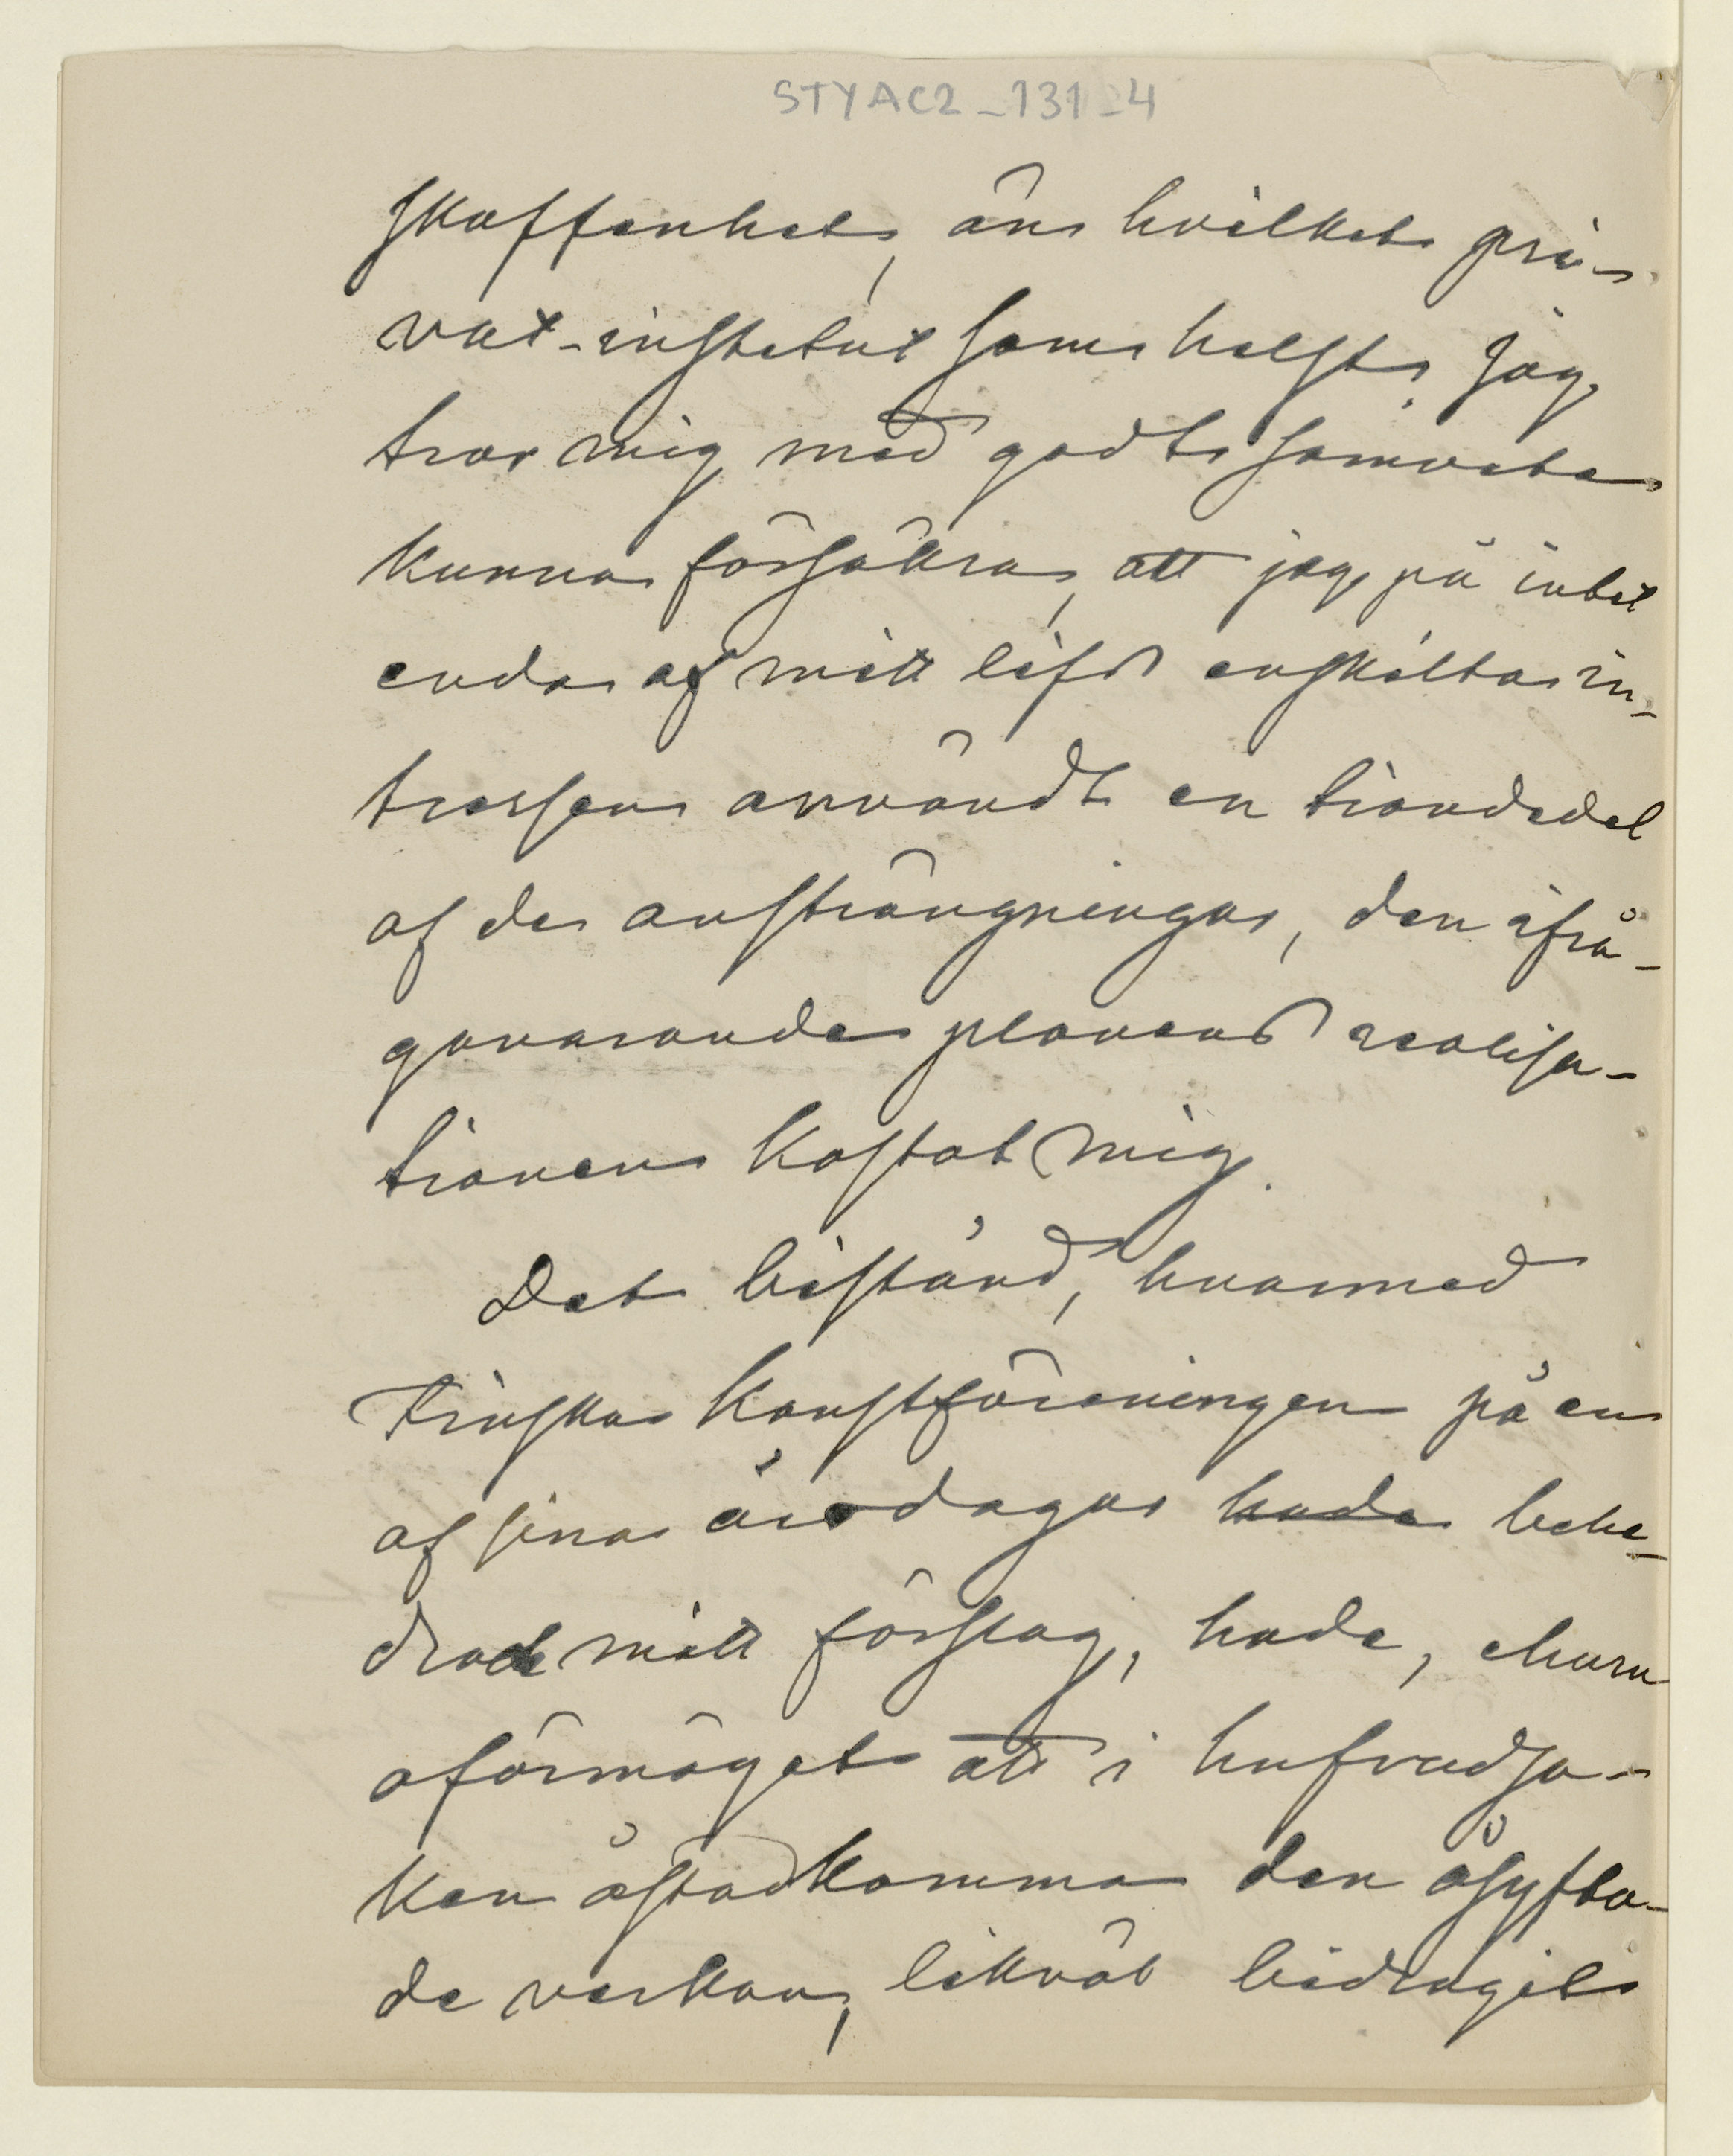 STYAC2_131_4
skaffenhet, än hvilket pri-
vat-institut som helst. Jag
tror mig med godt samvete
kunna försäkra, att jag på intet
enda af mitt lifs enskilta in-
tressen användt en tiondedel
af de ansträngningar, den ifrå-
gavarande planens realisa-
tionen kostat mig.
Det bistånd, hvarmed
Finska Konstföreningen på en
af sina årsdagar hade behe-
drade mitt förslag, hade, ehuru
oförmöget att i hufvudsa-
ken åstadkomma den åsyfta-
de verkan, likväl bidragit